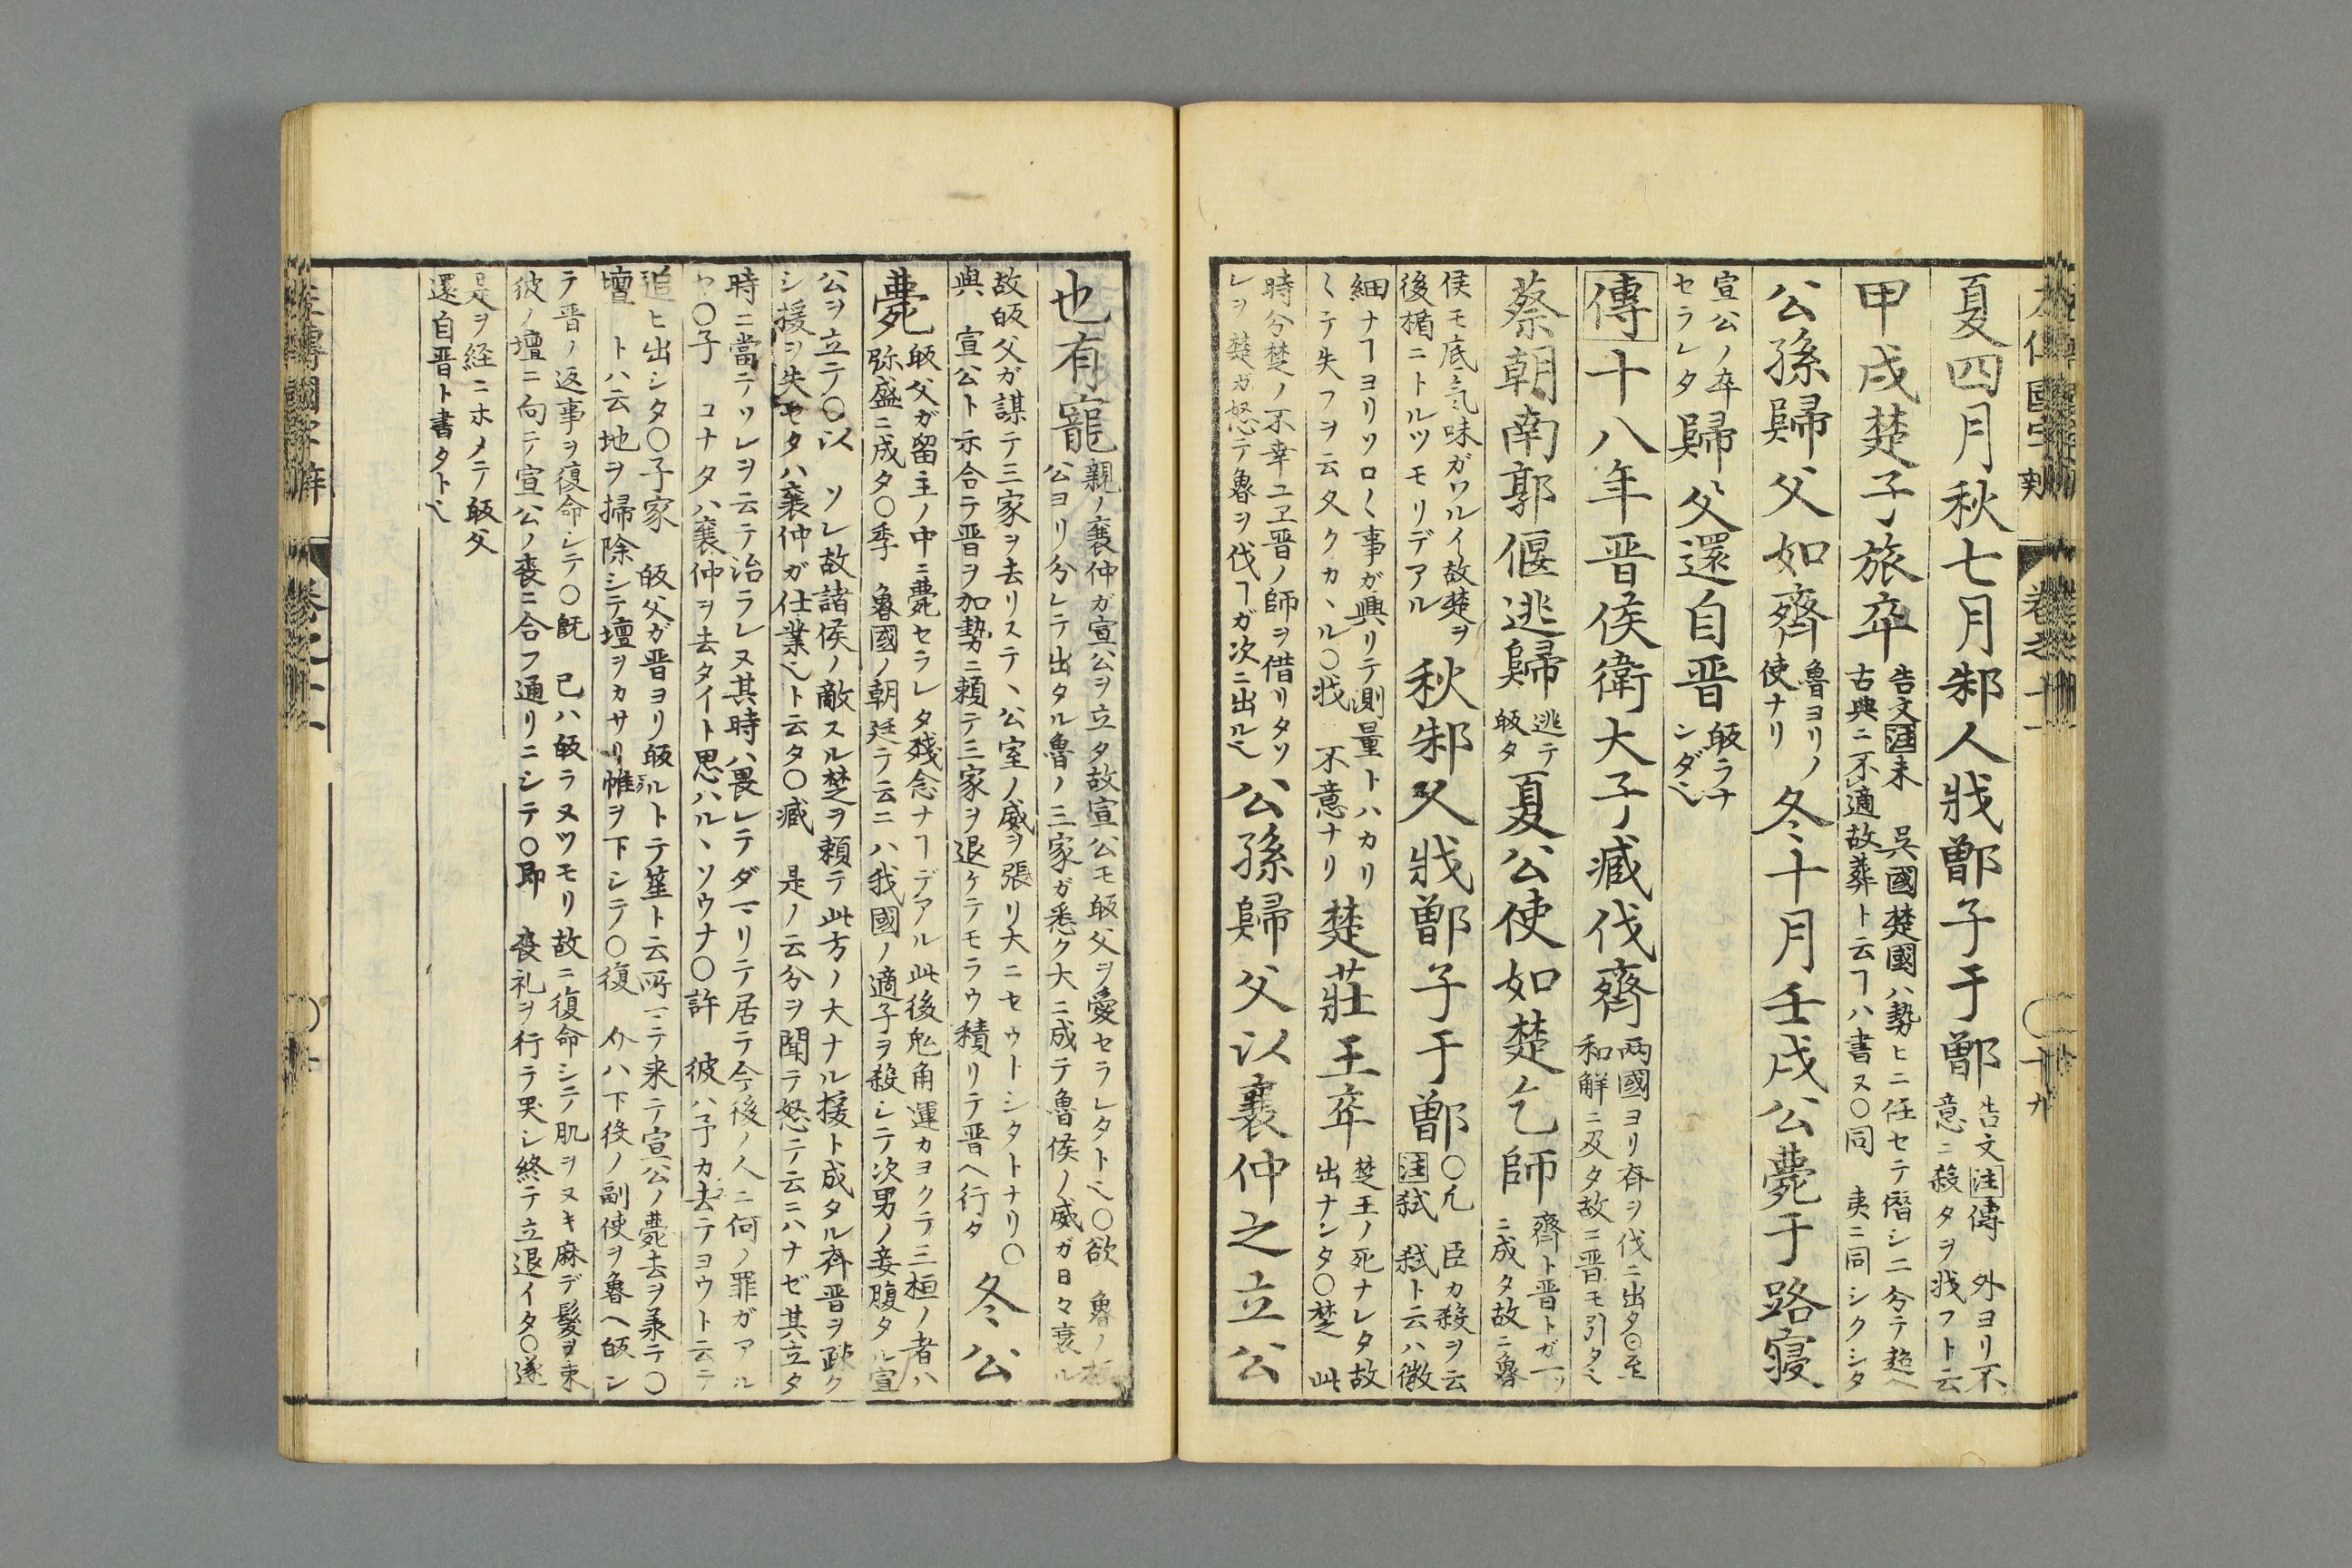 夏四月秋七月邾人戕鄫子于鄫
告文注傳 外ヨリ不
意ニ殺タヲ戕フト云
甲戌楚子旅卒
告文注未 吳國楚國ハ勢ヒニ任セテ僭シニ分テ趙ヘ
古典ニ不適故葬ト云ヿハ書ヌ〇同 夷ニ同シクシタ
公孫歸父如齊
魯ヨリノ
使ナリ
冬十月壬戌公薨于路寝
宣公ノ卒
セラレタ
歸父還自晋
皈ラナ
ンダ也
傳十八年晋侯衛大子臧伐齊
两國ヨリ斉ヲ伐ニ出タ〇至
和解ニ及タ故ニ晋モ引タ也
蔡朝南郭偃逃歸
逃テ
皈タ
夏公使如楚乞師
齊ト晋トガ一ツ
ニ成タ故ニ魯
侯モ底氣味ガワルイ故楚ヲ
後楯ニトルツモリデアル
秋邾人戕鄫子于鄫
〇凡 臣カ殺ヲ云
注弑 弑ト云ハ微
細ナヿヨリソロ〱事ガ興リテ測量トハカリ
〱テ失フヲ云タクカヽル〇戕 不意ナリ
楚莊王卒
楚王ノ死ナレタ故
出ナンタ〇楚 此
時分楚ノ不幸ユヱ晋ノ師ヲ借リタソ
レヲ楚ガ怒テ魯ヲ伐ヿガ次ニ出ル也
公孫歸父以襄仲之立公
也有寵
親ノ襄仲ガ宣公ヲ立タ故宣公モ皈父ヲ愛セラレタト也〇欲 魯ノ桓
公ヨリ分レテ出タル魯ノ三家ガ悉ク大ニ成テ魯侯ノ威ガ日々衰ル
故皈父ガ謀テ三家ヲ去リステヽ公室ノ威ヲ張リ大ニセウトシタトナリ〇
與 宣公ト示合テ晋ヲ加勢ニ頼テ三家ヲ退ケテモラウ積リテ晋ヘ行タ
冬公
薨
皈父ガ留主ノ中ニ薨セラレタ残念ナヿデアル此後鬼角運カヨクテ三桓ノ者ハ
弥盛ニ成タ〇季 魯國ノ朝廷テ云ニハ我國ノ適子ヲ殺シテ次男ノ妾腹タル宣
公ヲ立テ〇以 ソレ故諸侯ノ敵スル楚ヲ頼テ此方ノ大ナル援ト成タル斉晋ヲ疎ク
シ援ヲ失セタハ襄仲ガ仕業也ト云タ〇臧 是ノ云分ヲ聞テ怒テ云ニハナゼ其立タ
時ニ當テソレヲ云テ治ラレヌ其時ハ畏レテダマリテ居テ今後ノ人ニ何ノ罪ガアル
ヤ〇子 コナタハ襄仲ヲ去タイト思ハルヽソウナ〇許 彼ハ予カ去テヨウト云テ
追ヒ出シタ〇子家 皈父ガ晋ヨリ皈ルトテ笙ト云所マテ来テ宣公ノ薨去ヲ承テ〇
壇 トハ云地ヲ掃除シテ壇ヲカサリ帷ヲ下シテ〇復 介ハ下役ノ副使ヲ魯ヘ皈シ
テ晋ノ返事ヲ復命シテ〇既 已ハ皈ラヌツモリ故ニ復命シテ肌ヲヌキ麻デ髪ヲ束
彼ノ壇ニ向テ宣公ノ喪ニ合フ通リニシテ〇即 喪礼ヲ行テ哭シ終テ立退イタ〇遂
是ヲ経ニホメテ皈父
還自晋ト書タト也
左傳國字辯